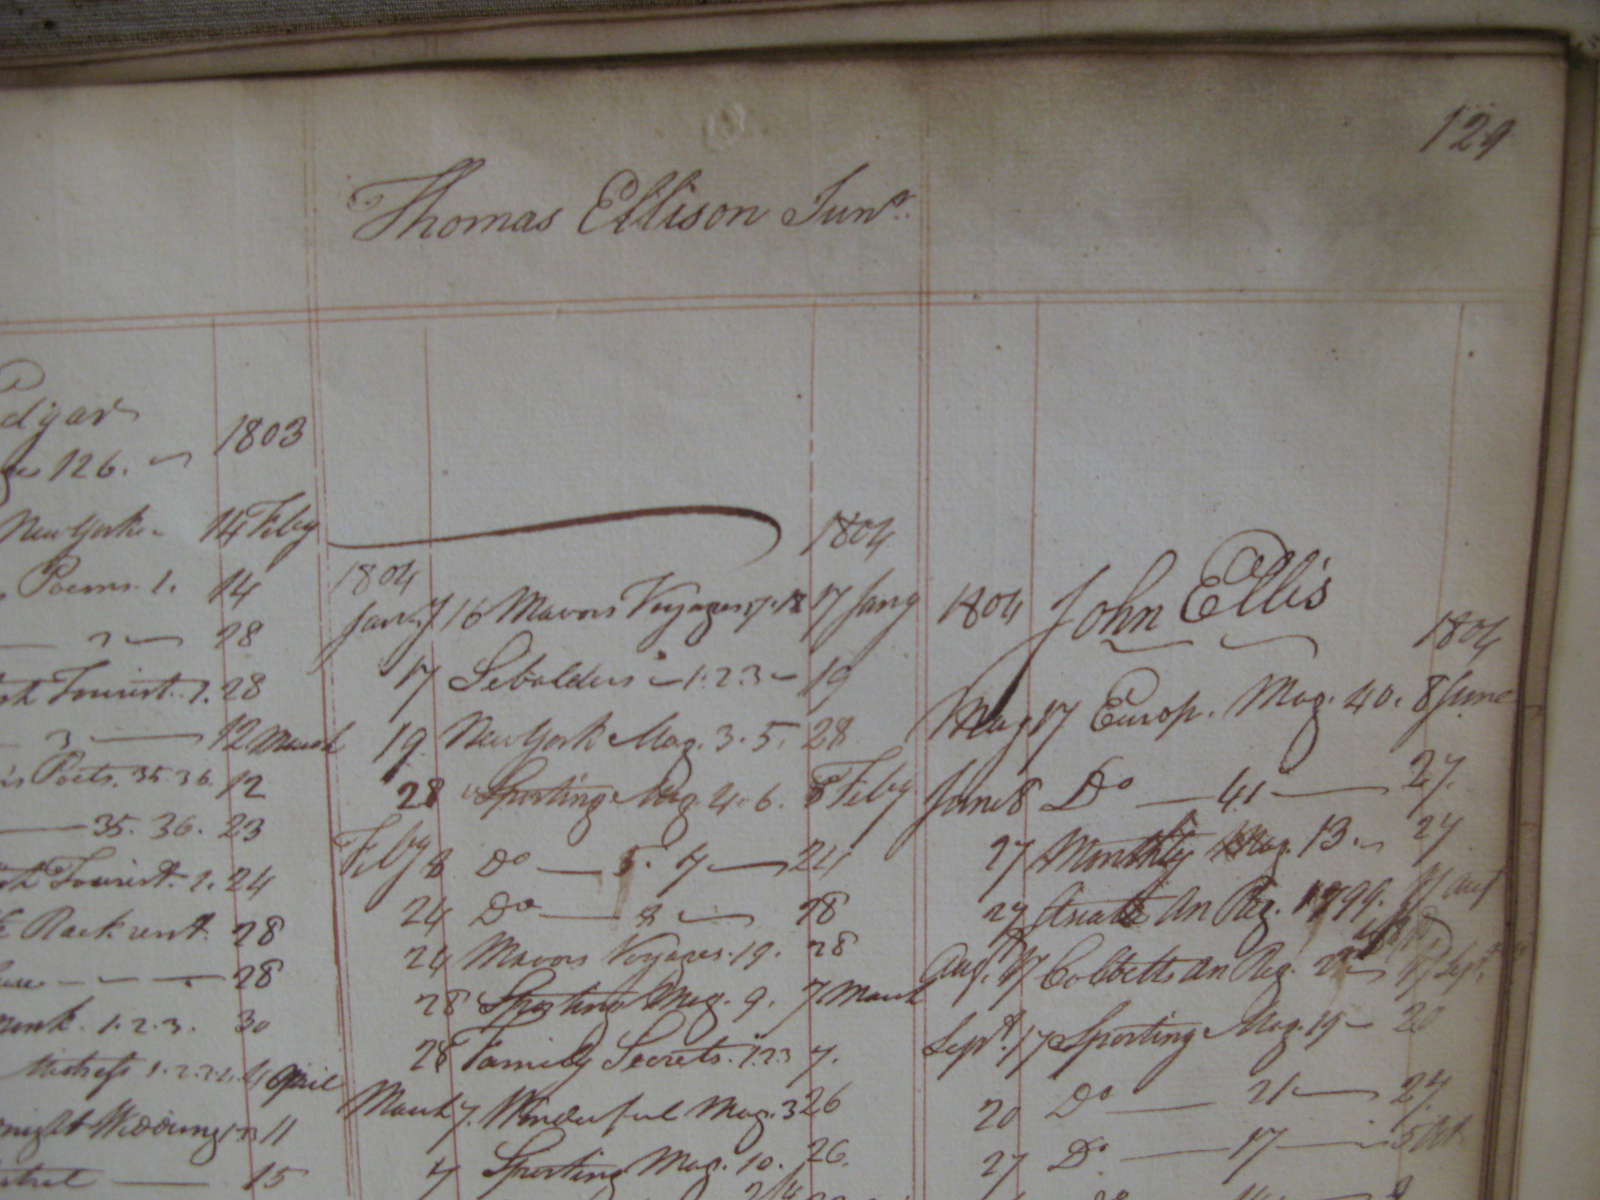 129
Thomas Ellison Junr.
Edgar
126.
1803
New York 14 Feby
Poems. 1. 14
28
Tourist. 1. 28
3 12 March
Poets. 35. 36. 12
35. 36. 23
Tourist. 2. 24
Rackrent. 28
28
1. 2. 3. 30
4 April
11
15
1804
1804
Jany 16 Mavors Voyages 17. 18 17 Jany
17 Sebaldus 1. 2 3 19
19. New York Mag. 3. 5. 28
28 Sporting Mag. 4. 6. 8 Feby
Feby 8 Do 5. 7 24
24 Do 8 28
24 Mavors Voyages. 19. 28
28 Sporting Mag. 9. 7 March
28 Family Secrets. 1. 2 3 7.
March 7. Wonderful Mag. 3 26
7 Sporting Mag. 10. 26.
1804 John Ellis
1804
May 17 Europ. Mag. 40. 8 June
June 8 Do 41 27.
27 Monthly Mag. 13. 27
27 An Reg. 1799. 17 Aug
Aug. 17 Cobbetts An Reg. 17 Sept.
Sept. 17 Sporting Mag. 19 20
20 Do 21 27
27 Do 17 5